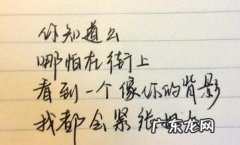 你知道么
哪怕在街上
看到一个像你的背影
我都会紧张
广东龙网